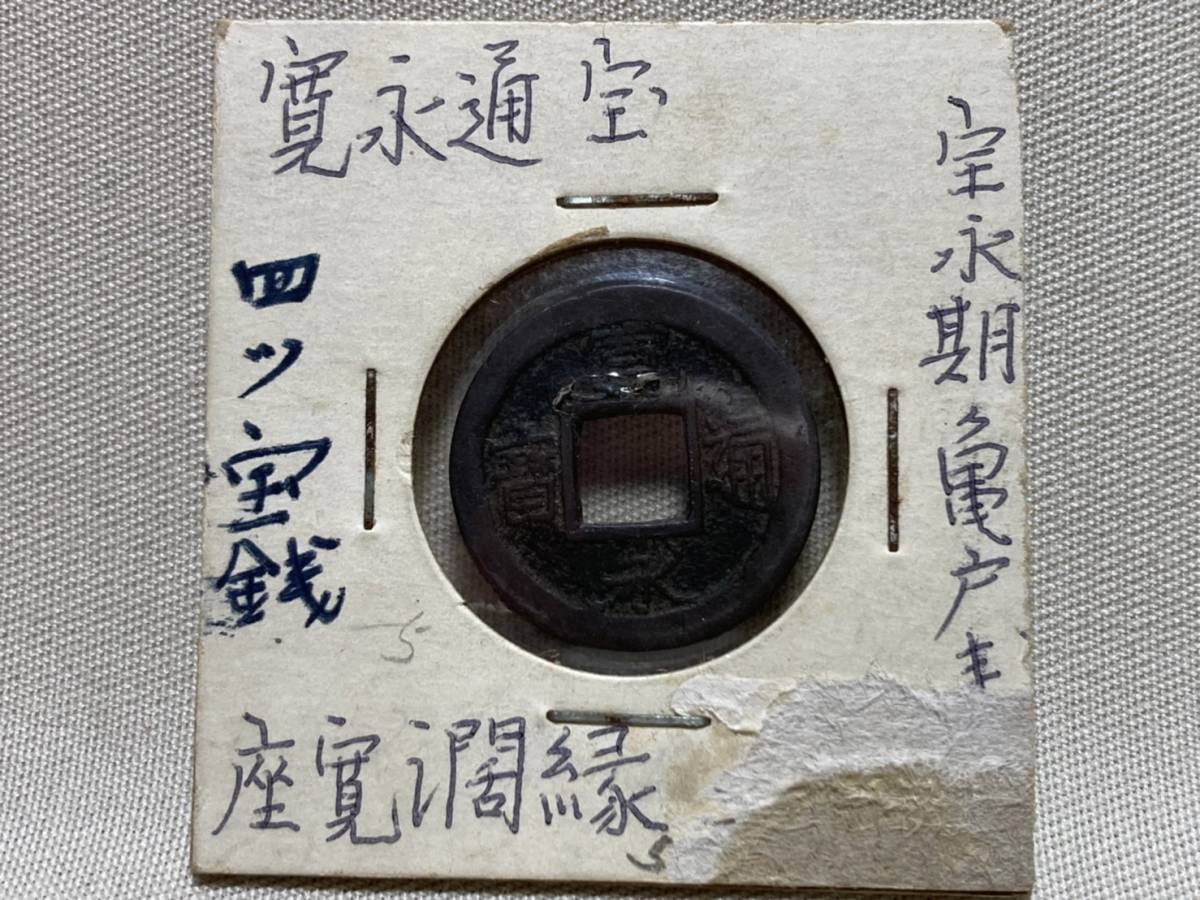 寛永通宝
宝永期亀戸
四ツ宝銭
寛永通寳
5
座寛濶縁
5